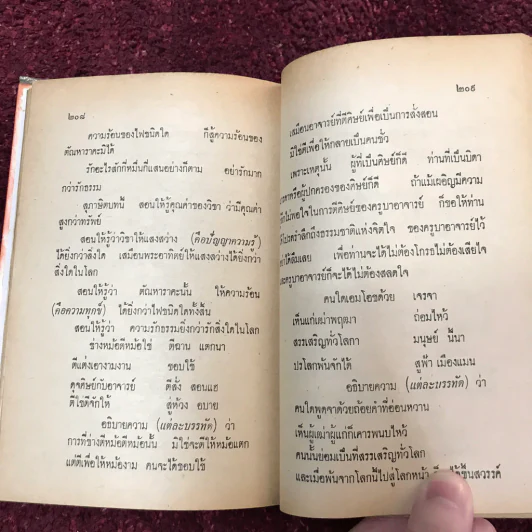 ๒๐๘
ความร้อนของไฟชนิดใด ก็สู้ความร้อนของ
ตัณหาราคะมิได้
รักอะไรสักกี่หมื่นกี่แสนอย่างก็ตาม อย่ารักมาก
กว่ารักธรรม
สุภาษิตบทนี้ สอนให้รู้คุณค่าของวิชา ว่ามีคุณค่า
สูงกว่าทรัพย์
สอนให้รู้ว่าวิชาให้แสงสว่าง (คือปัญญาความรู้)
ได้ยิ่งกว่าสิ่งใด เสมือนพระอาทิตย์ให้แสงสว่างได้ยิ่งกว่า
สิ่งใดในโลก
สอนให้รู้ว่า ตัณหาราคะนั้น ให้ความร้อน
(คือความทุกข์) ได้ยิ่งกว่าไฟชนิดใดทั้งสิ้น
สอนให้รู้ว่า ความรักธรรมยิ่งกว่ารักสิ่งใดในโลก
ช่างหม้อตีหม้อใช่ ตีฉาน แตกนา
ตีแต่งเอางามงาน ชอบใช้
ดุจศิษย์กับอาจารย์ ตีสั่ง สอนแฮ
ตีใช่ตีจักให้ สู่ห้วง อบาย
อธิบายความ (แต่ละบรรทัด) ว่า
การที่ช่างตีหม้อตีหม้อนั้น มิใช่จะตีให้หม้อแตก
แต่ตีเพื่อให้หม้องาม คนจะได้ชอบใช้
๒๐๙
เสมือนอาจารย์ที่ตีศิษย์เพื่อเป็นการสั่งสอน
มิใช่ตีเพื่อให้กลายเป็นคนชั่ว
เพราะเหตุนั้น ผู้ที่เป็นศิษย์ก็ดี ท่านที่เป็นบิดา
มารดาหรือผู้ปกครองของศิษย์ก็ดี ถ้าแม้เผอิญมีความ
ไม่พอใจในการตีศิษย์ของครูบาอาจารย์ ก็ขอให้ท่าน
โปรดรำลึกถึงธรรมชาติแห่งจิตใจ ของครูบาอาจารย์ไว้
อย่าได้ลืมเลย เพื่อท่านจะได้ไม่ต้องโกรธไม่ต้องเสียใจ
และครูบาอาจารย์ก็จะได้ไม่ต้องสลดใจ
คนใดเอมโอชด้วย เจรจา
เห็นแก่เฒ่าพฤฒา ถ่อมไหว้
สรรเสริญทั่วโลกา มนุษย์ นี้นา
ปรโลกพ้นจักได้ สู่ฟ้า เมืองแมน
อธิบายความ (แต่ละบรรทัด) ว่า
คนใดพูดจาด้วยถ้อยคำที่อ่อนหวาน
เห็นผู้เฒ่าผู้แก่ก็เคารพนบไหว้
คนนั้นย่อมเป็นที่สรรเสริญทั่วโลก
และเมื่อพ้นจากโลกนี้ไปสู่โลกหน้า ได้ขึ้นสวรรค์